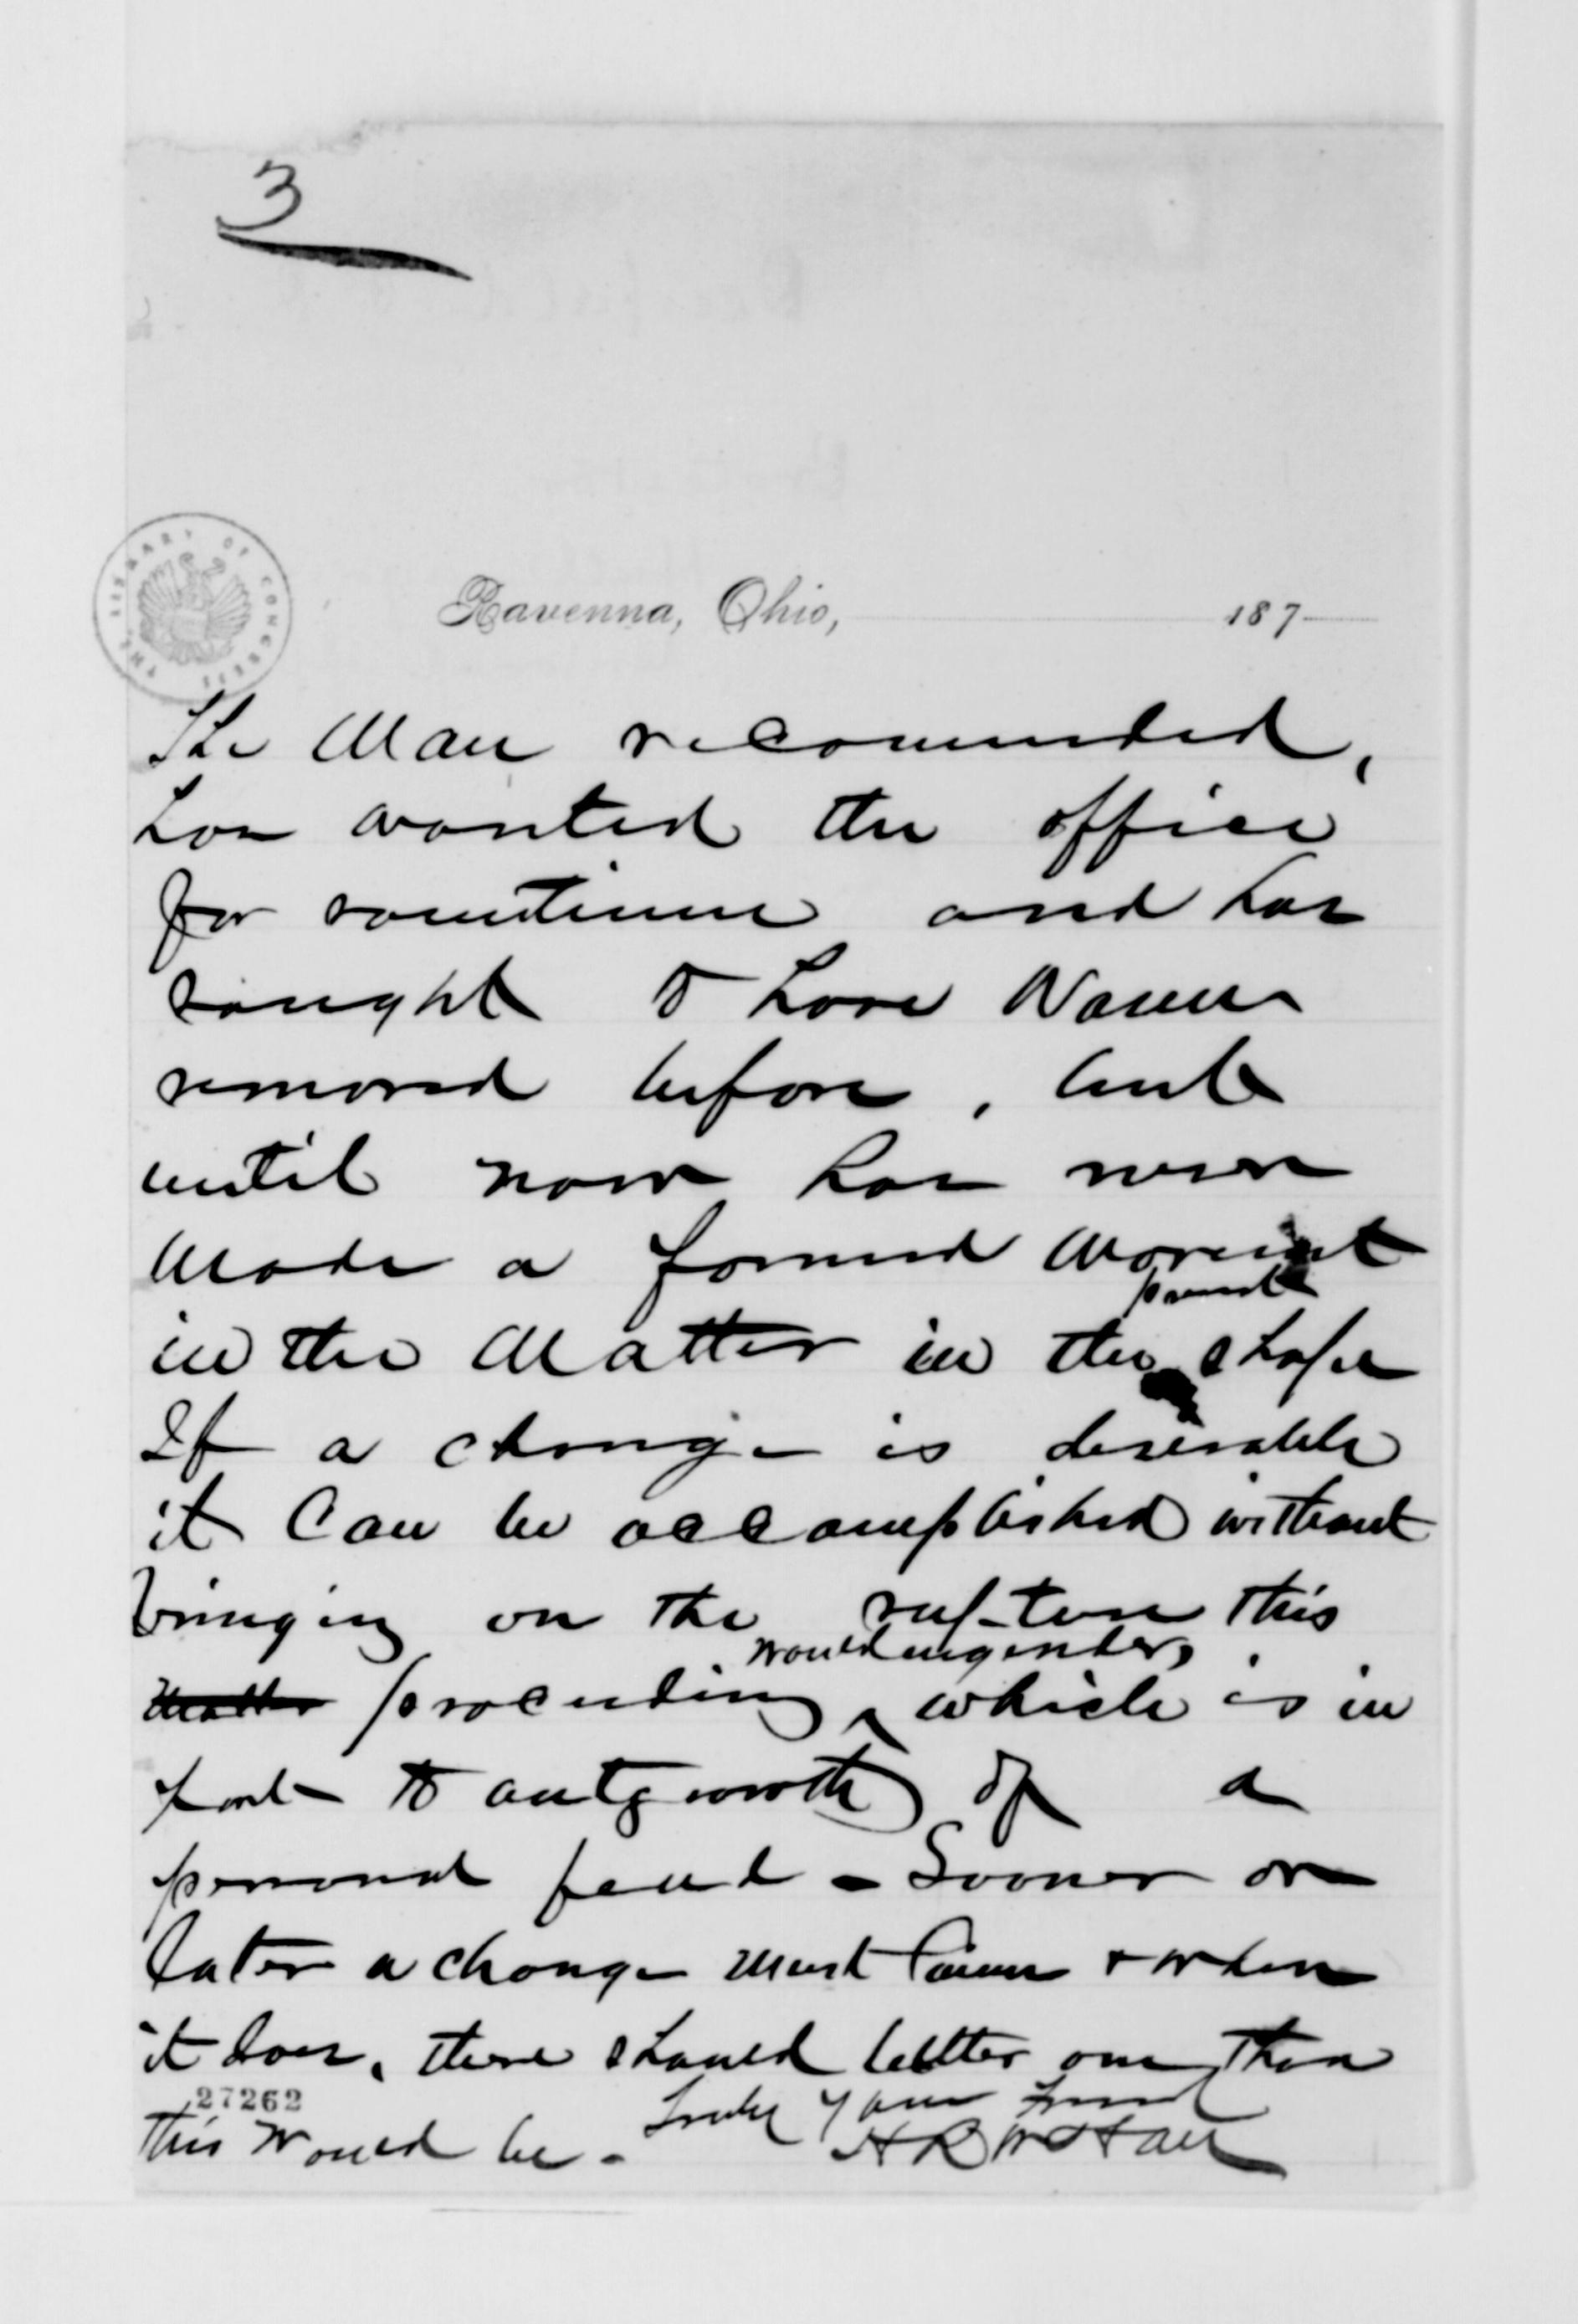 3
Ravenna, Ohio, 187
The Man recommended,
has wanted the office
for sometime and has
sought to have
removed before, but
until now has never
made a formal movement
in the matter in the present shape
If a change is desirable
it can be accomplished without
bringing on the rupture this
matter proceeding would engender, which is in
part to outgrowth of a
personal feud - Sooner or
later a change must come + when
it does, there should better one than
this would be. Truly Your Friend
27262
THE LIBRARY OF CONGRESS